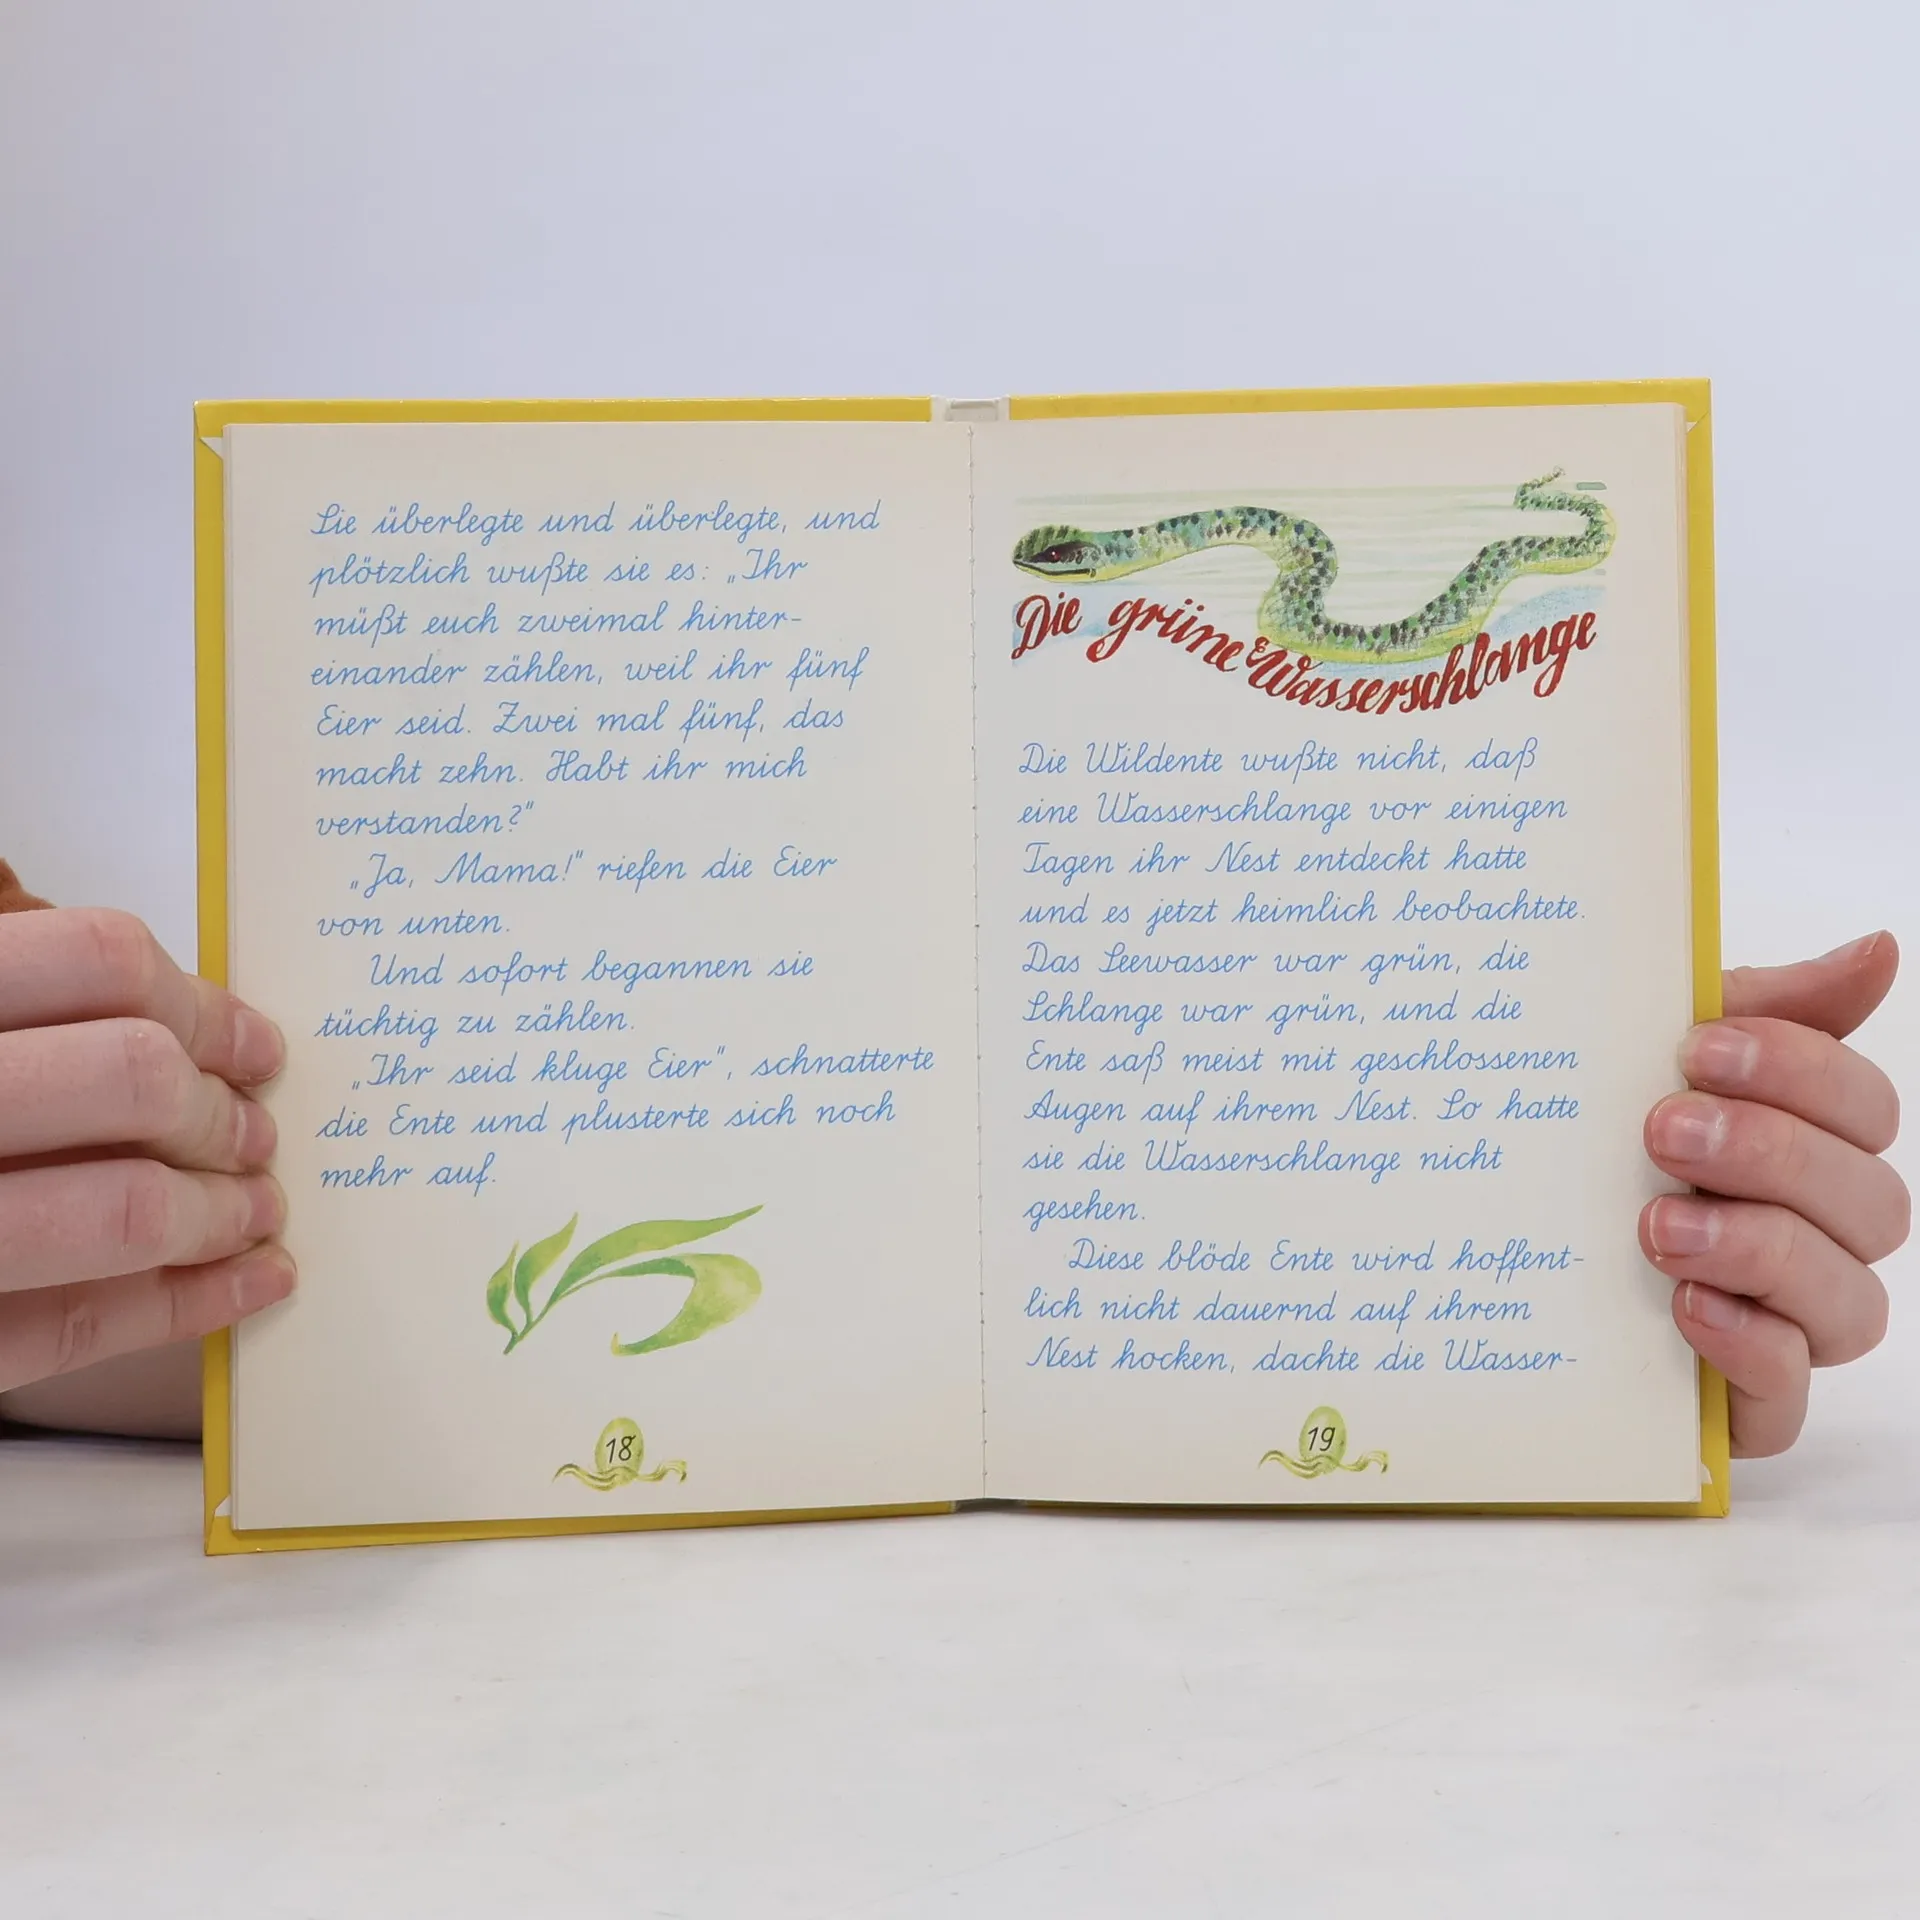 Sie überlegte und überlegte, und
plötzlich wußte sie es: „Ihr
müßt euch zweimal hinter-
einander zählen, weil ihr fünf
Eier seid. Zwei mal fünf, das
macht zehn. Habt ihr mich
verstanden?"
„Ja, Mama!" riefen die Eier
von unten.
Und sofort begannen sie
tüchtig zu zählen.
„Ihr seid kluge Eier", schnatterte
die Ente und plusterte sich noch
mehr auf.
18
Die grüne Wasserschlange
Die Wildente wußte nicht, daß
eine Wasserschlange vor einigen
Tagen ihr Nest entdeckt hatte
und es jetzt heimlich beobachtete.
Das Seewasser war grün, die
Schlange war grün, und die
Ente saß meist mit geschlossenen
Augen auf ihrem Nest. So hatte
sie die Wasserschlange nicht
gesehen.
Diese blöde Ente wird hoffent-
lich nicht dauernd auf ihrem
Nest hocken, dachte die Wasser-
19